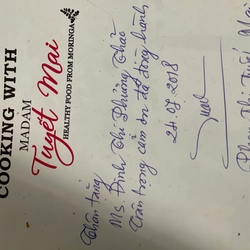 COOKING WITH
MADAM
Tuyết Mai
HEALTHY FOOD FROM MORINGA
Thân tặng
Ms Đinh Thi Phùng Thảo
Trân trọng cảm ơn đã đồng hành
24.07.2018